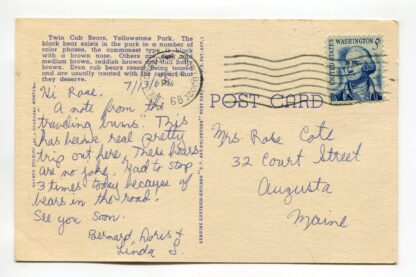 Twin Cub Bears, Yellowstone Park. The
black bear exists in the park in a number of
color phases, the commonest type is black
with a brown nose. Others are dark and
medium brown, reddish brown and dull buffy
brown. Even cub bears resent being teased
and are usually treated with the respect that
they deserve.
7/13/68
Hi Rose.
A note from the
"traveling bums". This
has been a real pretty
trip out here. These bears
are no joke. Had to stop
3 times today because of
bears in the road!
See you soon.
Bernard, Doris &
Linda S.
PM
68
UNITED STATES
WASHINGTON 5c
POST CARD
Mrs Rose Cote
32 Court Street
Augusta
Maine